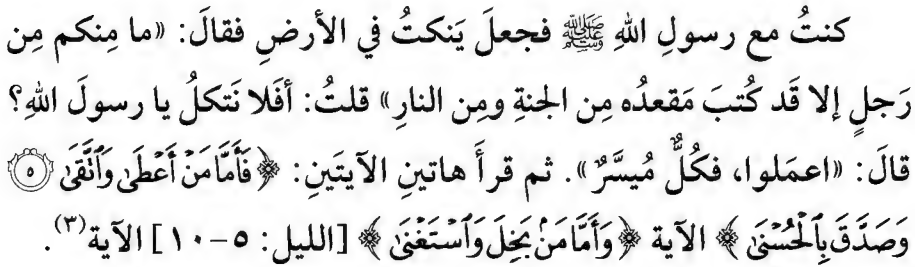 كنتُ مع رسولِ اللهِ ﷺ فجعلَ يَنكتُ في الأرضِ فقالَ: «ما مِنكم مِن
رَجلٍ إلا قَد كُتبَ مَقعدُه مِن الجنةِ ومِن النارِ» قلتُ: أفَلا نَتكلُ يا رسولَ اللهِ؟
قالَ: «اعمَلوا، فكُلٌّ مُيسَّرٌ». ثم قرأَ هاتينِ الآيتَينِ: ﴿فَأَمَّا مَنْ أَعْطَىٰ وَٱتَّقَىٰ ۝٥
وَصَدَّقَ بِٱلْحُسْنَىٰ﴾ الآية ﴿وَأَمَّا مَنۢ بَخِلَ وَٱسْتَغْنَىٰ﴾ [الليل: ٥-١٠] الآية(٣).